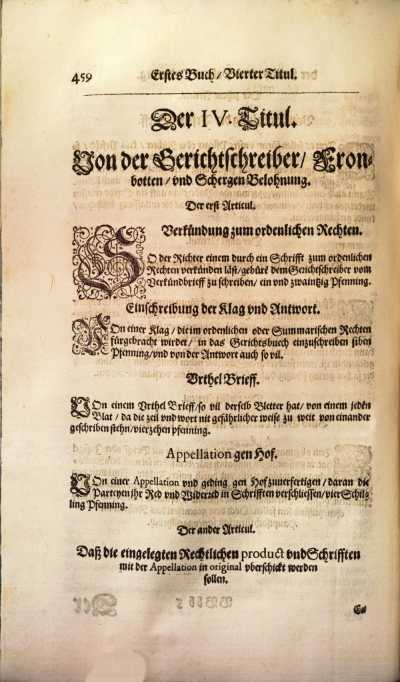 459 Erstes Buch / Vierter Titul.
Der IV. Titul.
Von der Gerichtschreiber / Fron-
botten / vnd Schergen Belohnung.
Der erst Articul.
Verkündung zum ordenlichen Rechten.
SO der Richter einem durch ein Schrifft zum ordenlichen
Rechten verkünden läst / gebürt dem Gerichtschreiber vom
Verkündbrieff zu schreiben / ein vnd zwaintzig Pfenning.
Einschreibung der Klag vnd Antwort.
VOn einer Klag / die im ordenlichen oder Summarischen Rechten
fürgebracht wirdet / in das Gerichtsbuech einzuschreiben siben
Pfenning / vnd von der Antwort auch so vil.
Vrthel Brieff.
VOn einem Vrthel Brieff / so vil derselb Bletter hat / von einem jeden
Blat / da die zeil vnd wort nit gefährlicher weise zu weit von einander
geschriben stehn / vierzehen pfenning.
Appellation gen Hof.
VOn einer Appellation vnd geding gen Hof zuuerfertigen / daran die
Partheyen ihr Red vnd Widerred in Schrifften verschliessen / vier Schil-
ling Pfenning.
Der ander Articul.
Daß die eingelegten Rechtlichen product vnd Schrifften
mit der Appellation in original vberschickt werden
sollen.